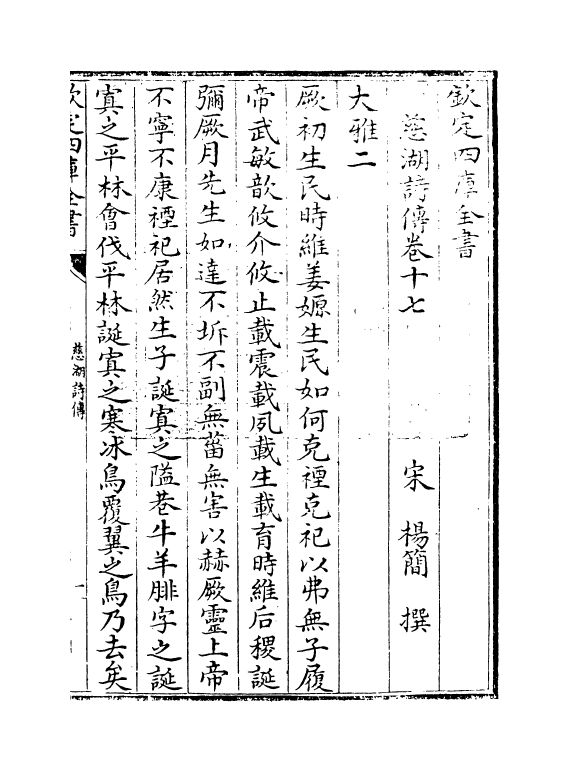 欽定四庫全書
慈湖詩傳卷十七
宋 楊簡 撰
大雅二
厥初生民時維姜嫄生民如何克禋克祀以弗無子履
帝武敏歆攸介攸止載震載夙載生載育時維后稷誕
彌厥月先生如達不坼不副無菑無害以赫厥靈上帝
不寧不康禋祀居然生子誕寘之隘巷牛羊腓字之誕
寘之平林會伐平林誕寘之寒冰鳥覆翼之鳥乃去矣
欽定四庫全書
慈湖詩傳
一